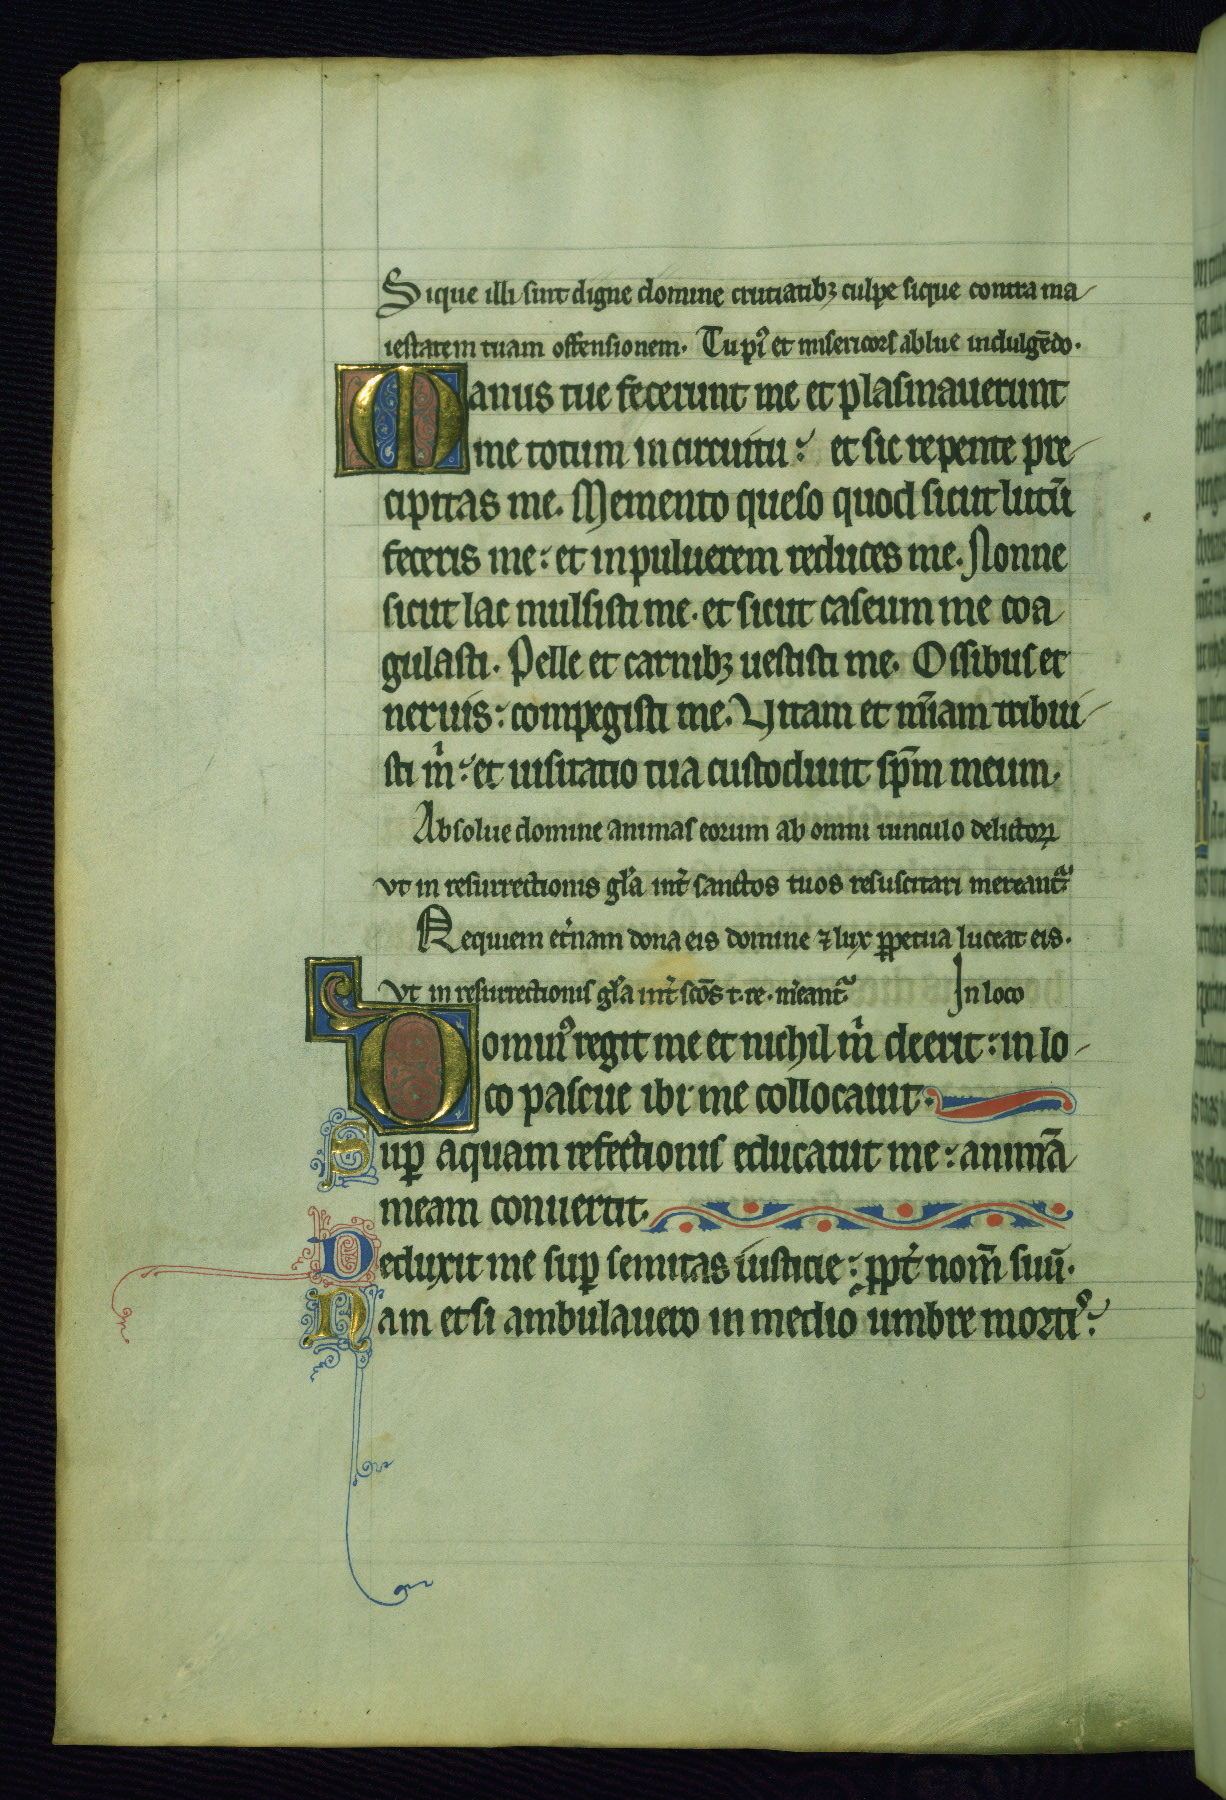 Sique illi sint digne domine cruciatibꝫ culpe sique contra ma
iestatem tuam offensionem. Tu pi᷒ et misericors ablue indulgēdo.
Manus tue fecerunt me et plasmauerunt
me totum in circuitu: et sic repente pre
cipitas me. Memento queso quod sicut lutū
feceris me: et in puluerem reduces me. Nonne
sicut lac mulsisti me. et sicut caseum me coa
gulasti. Pelle et carnibꝫ uestisti me. Ossibus et
neruis: compegisti me. Vitam et mīam tribui
sti m̍: et uisitatio tua custodiuit sp̄m meum.
Absolue domine animas eorum ab omni uinculo delictoꝝ
vt in resurrectionis gl̍a int̍ sanctos tuos resuscitari mereant᷑
Requiem et̍nam dona eis domine ⁊ lux ꝑpetua luceat eis.
Vt in resurrectionis gl̍a int̍ scōs t. re. m̍eant᷑ In loco
Domin᷒ regit me et nichil m̍ deerit: in lo
co pascue ibi me collocauit.
Suꝑ aquam refectionis educauit me: animā
meam conuertit.
Deduxit me suꝑ semitas iusticie: ꝓpt̍ nom̄ suū.
Nam et si ambulauero in medio umbre morti᷒: